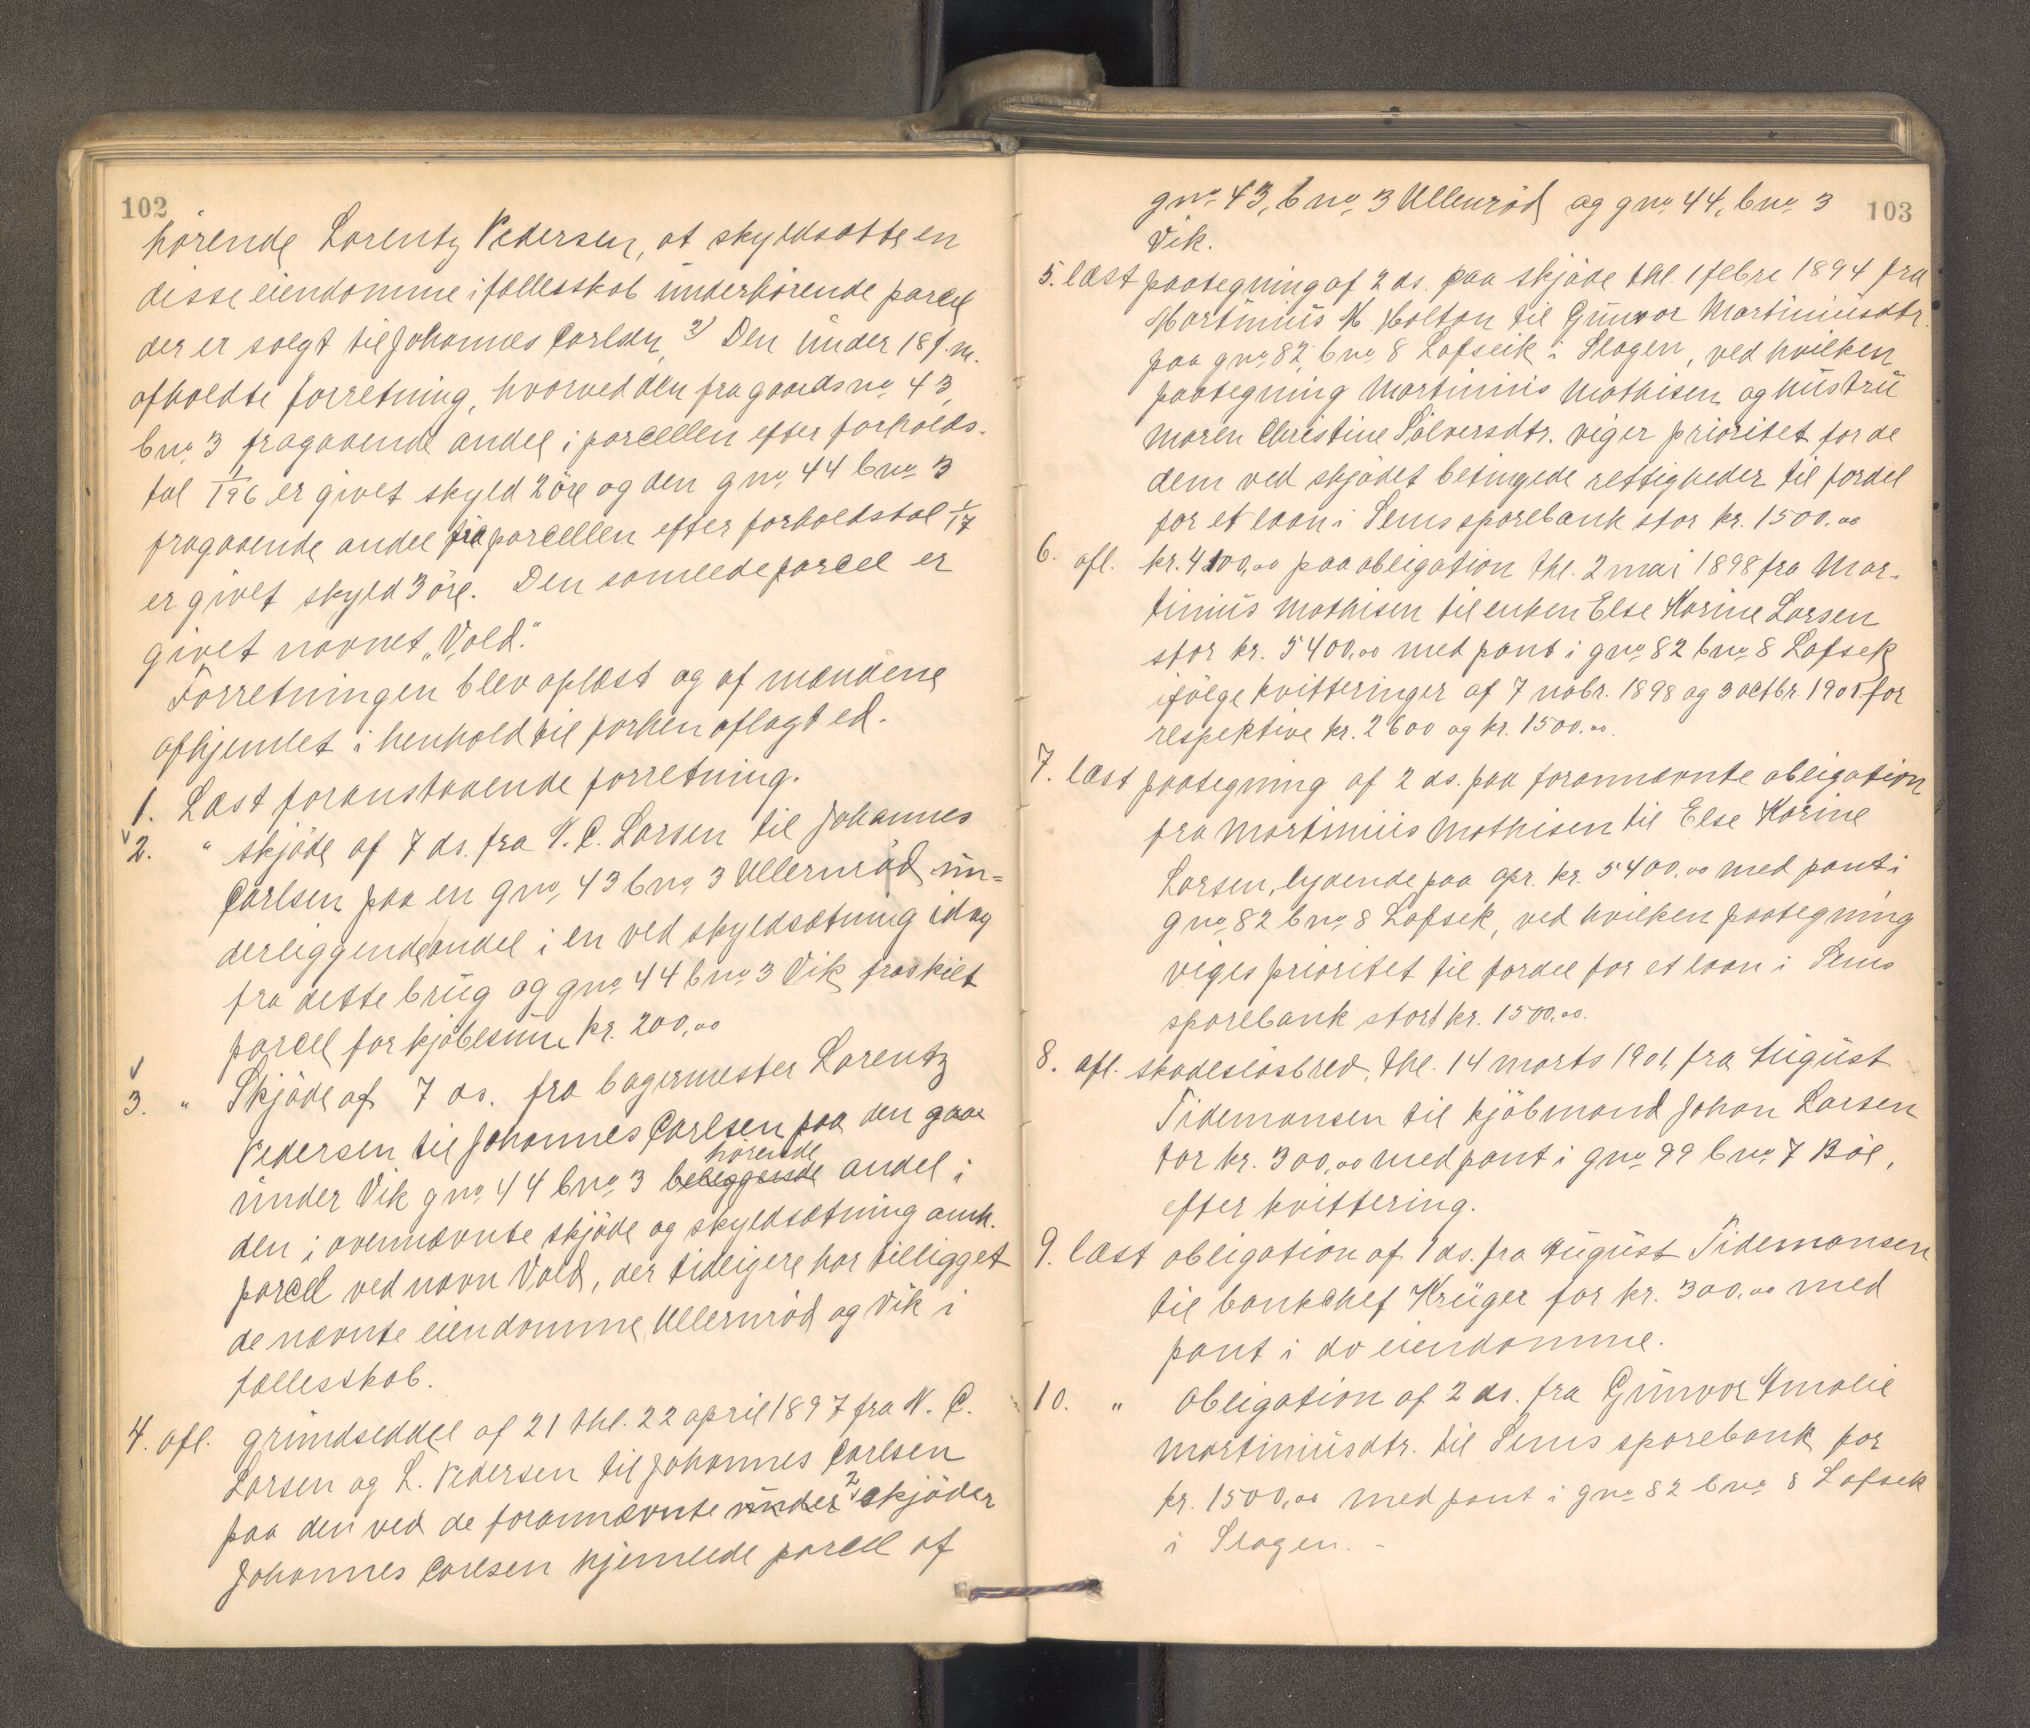 102
hørende Lorentz Pedersen, at skyldsætte en
disse eiendomme i fællesskab underhørende parcel
der er solgt til Johannes Carlsen, 2) Den under 18 f. m.
afholdte forretning, hvorved den fra gaardsno. 43,
bno. 3 fragaaende andel i parcellen efter forholds-
tal 1/196 er givet skyld 2 öre og den gno. 44 bno. 3
fragaaende andel fra parcellen efter forholdstal 1/17
er givet skyld 3 öre. Den samlede parcel er
givet navnet „Vold."
Forretningen blev oplæst og af mændene
afhjemlet i henhold til forhen aflagt ed.
1. Læst foranstaaende forretning.
2. " skjöde af 7 ds. fra N. C. Larsen til Johannes
Carlsen paa en gno. 43 bno. 3 Ullernröd un=
derliggende andel i en ved skyldsætning idag
fra dette brug og gno 44 bno 3 Vik fraskilt
parcel for kjöbesum kr. 200,00
3. " Skjöde af 7 ds. fra bagermester Lorentz
Pedersen til Johannes Carlsen paa den gaar
hörende
under Vik gno. 44 bno. 3 beliggende andel i
den i ovennævnte skjöde og skyldsætning omh.
parcel ved navn Vold, der tidligere har tilligget
de nævnte eiendomme Ullernröd og Vik i
fællesskab.
4. afl. grundseddel af 21 thl. 22 april 1897 fra N. C.
Larsen og L. Pedersen til Johannes Carlsen
paa den ved de forannævnte under 2 skjöder
Johannes Carlsen hjemlede parcel af
103
gno. 43, bno. 3 Ullenröd og gno. 44, bno. 3
Vik.
5. læst paategning af 2 ds. paa skjöde thl. 1 febr 1894 fra
Martinius M Holton til Gunvor Martiniusdtr.
paa gno. 82, bno. 8 Lofseik i Slagen, ved hvilken
paategning Martinius Mathisen og hustru
Maren Christine Sölversdtr. viger prioritet for de
dem ved skjödet betingede rettigheder til fordel
for et laan i Sems sparebank stor kr. 1500.00
6. afl. kr. 4100,00 paa obligation thl. 2 mai 1898 fra Mar-
tinius Mathisen til enken Else Karine Larsen
stor kr. 5400,00 med pant i gno. 82 bno. 8 Lofsek
ifölge kvitteringer af 7 nobr. 1898 og 3 octbr. 1901 for
respektive kr. 2600 og kr. 1500.00.
7. læst paategning af 2 ds. paa forannævnte obligation
fra Martinius Mathisen til Else Karine
Larsen, lydende paa opr. kr. 5400,00 med pant i
gno. 82 bno. 8 Lofsek, ved hvilken paategning
viges prioritet til fordel for et laan i Sems
sparebank stort kr. 1500.00.
8. afl. skadeslösbrev, thl. 14 marts 1901, fra August
Tidemansen til kjöbmand Johan Larsen
for kr. 300,00 med pant i gno 99 bno. 7 Böl,
efter kvittering.
9. læst obligation af 1 ds. fra August Tidemansen
til bankchef Krüger for kr. 300,00 med
pant i do eiendomme.
10. " obligation af 2 ds. fra Gunvor Amalie
Martiniusdtr. til Sems sparebank for
kr. 1500,00 med pant i gno 82 bno. 8 Lofsek
i Slagen. -